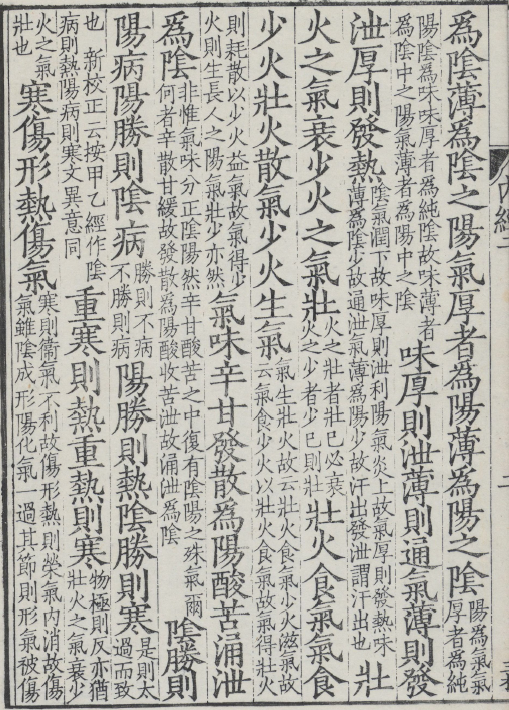 為陰薄為陰之陽氣厚者為陽薄為陽之陰
陽為氣氣
厚者為純
陽陰為味味厚者為純陰故味薄者
為陰中之陽氣薄者為陽中之陰
味厚則泄薄則通氣薄則發
泄厚則發熱
陰氣潤下故味厚則泄利陽氣炎上故氣厚則發熱味
薄為陰少故通泄氣薄為陽少故汗出發泄謂汗出也
壯
火之氣衰少火之氣壯
火之壯者壯已必衰
火之少者少已則壯
壯火食氣氣食
少火壯火散氣少火生氣
氣生壯火故云壯火食氣少火滋氣故
云氣食少火以壯火食氣故氣得壯火
則耗散以少火益氣故氣得少
火則生長人之陽氣壯少亦然
氣味辛甘發散為陽酸苦涌泄
為陰
非惟氣味分正陰陽然辛甘酸苦之中復有陰陽之殊氣爾
何者辛散甘緩故發散為陽酸收苦泄故涌泄為陰
陰勝則
陽病陽勝則陰病
勝則不病
不勝則病
陽勝則熱陰勝則寒
是則太
過而致
也 新校正云按甲乙經作陰
病則熱陽病則寒文異意同
重寒則熱重熱則寒
物極則反亦猶
壯火之氣衰少
火之氣
壯也
寒傷形熱傷氣
寒則衛氣不利故傷形熱則榮氣內消故傷
氣雖陰成形陽化氣一過其節則形氣被傷